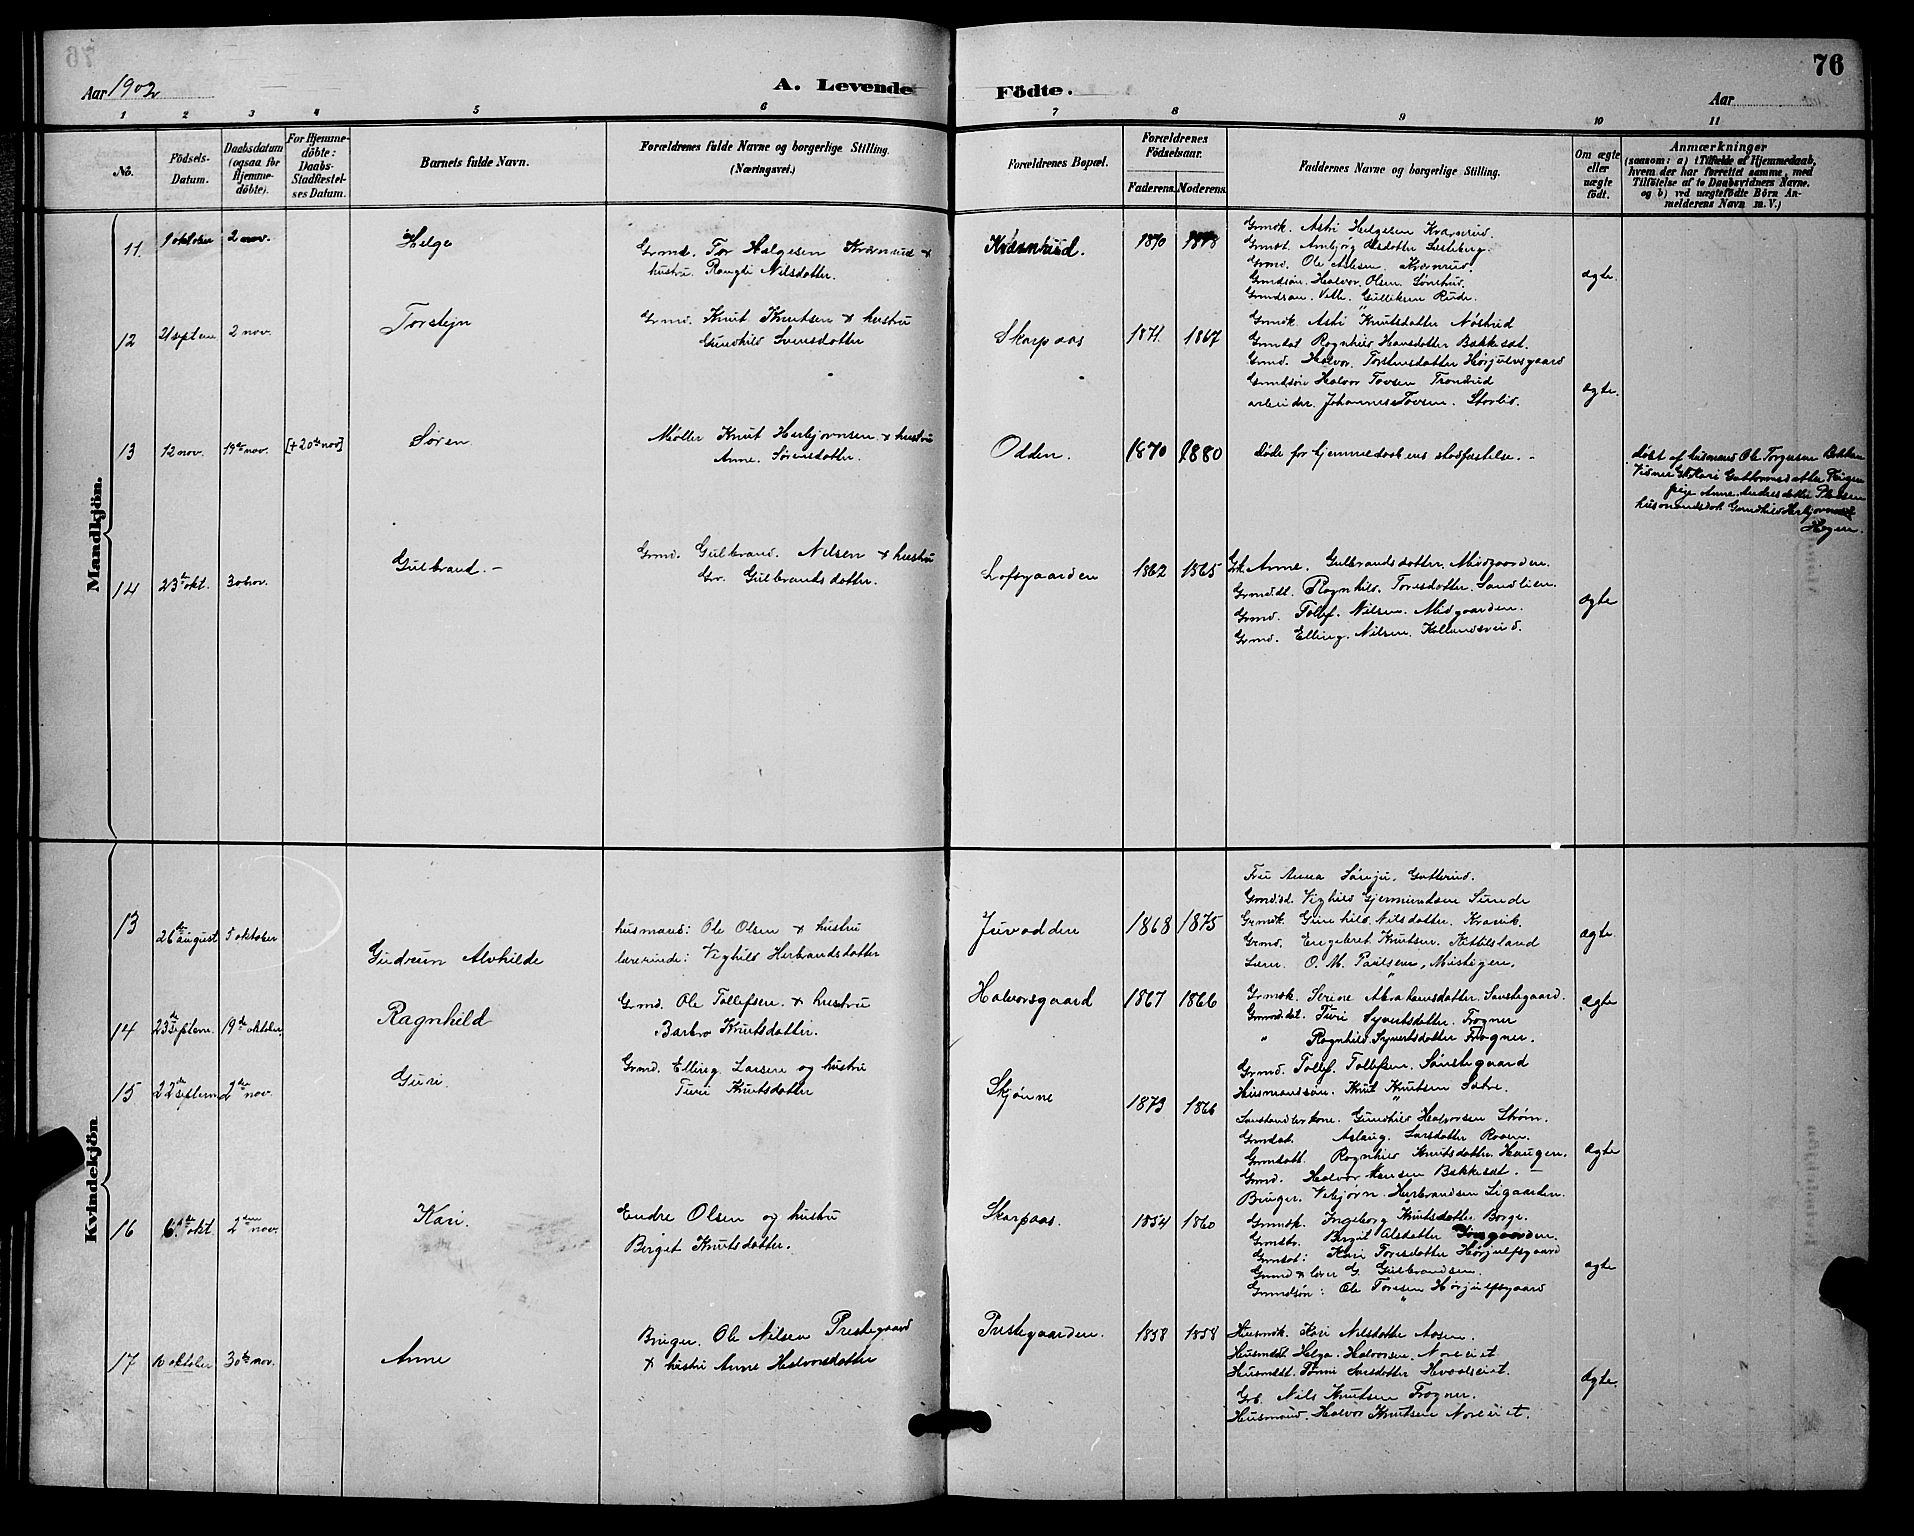 76
Aar 1902
A. Levende Födte.
Aar
1 2 3 4 5 6 7 8 9 10 11
No.
Födsels-Datum.
Daabsdatum (ogsaa for Hjemme-döbte).
For Hjemme-döbte: Daabs-Stadfæstel-ses Datum.
Barnets fulde Navn.
Forældrenes fulde Navne og borgerlige Stilling.
(Næringsvei.)
Forældrenes Bopæl.
Forældrenes Födselsaar.
Faderens. Moderens.
Faddernes Navne og borgerlige Stilling.
Om ægte eller uægte födt.
Anmærkninger
(saasom: a) i Tilfælde af Hjemmedaab,
hvem der har forrettet samme, med
Tilföielse af to Daabsvidners Navne,
og b) ved uægtefödte Börn An-
melderens Navn m. V.)
Mandkjön.
11. 9 oktober 2 nov. Helge
Grmd. Tor Helgesen Kravnrud &
hustru Rangdi Nilsdatter.
Kravnrud. 1870 1878
Grmdk. Astri Helgesen Kravnrud.
Grmdt. Ambjørg Olsdatter
Grmd. Ole Aslesen. Kravnrud.
Grmdsøn. Halvor. Olsen Sønstrud.
Grmdsøn. Vetle. Gulliksen Rude.
ægte.
12 21 septem 2 nov. Torstejn
Grmd. Knut Knutsen & hustru
Gunhild Svensdatter
Skarpaas 1871. 1867
Grmdk. Astri Knutsdatter Nøstrud
Grmdat. Ragnhild Hansdatter Bakkesat.
Grmd. Halvor. Torstensdatter Hørjulvsgaard
Grmdsøn Halvor Tovsen Trondrud
arbeider. Johannes Tovsen. Storlid.
ægte.
13 12 nov. 19de nov. [+20de nov] Søren
Møller Knut Herbjørnsen & hustru
Anne. Sørensdatter.
Odden. 1870 1880
Døde før hjemmedaabens stadfæstelse. -
døbt af husmand Ole Torgersen Bakken
Vidner Gk Kari Guttormsdatter
pige Anne. Andersdatter
husmandsdat. Gunhild Herbjørnsdt
Hagen.
14 23de okt. 30 nov. Gulbrand. -
Grmd. Gulbrand. Nilsen & hustru
Gro. Gulbrandsdatter.
Lofsgaarden 1862 1865
Gk. Anne. Gulbrandsdatter. Midgaarden.
Grmddt. Ragnhild. Toresdatter. Sandlien.
Grmd. Tollef. Nilsen. Midgaarden.
Grmd. Elling. Nilsen. Kollandsreid.
ægte
Kvindekjön
13 26de august 5 oktober Gudrun Alvhilde
husmand: Ole Olsen & hustru
lærerinde: Vighild Herbrandsdatter
Juvodden 1868 1875
Fru Anna Sønju, Gutterud.
Grmdsd. Vighild Gjermundsen Sunde
Grmdk. Gunhild. Nilsdatter. Kravik.
Grmd. Engebret Knutsen. Kittilsland
Lærer. O. M. Paulsen, Mustigen.
ægte.
14 23de septem. 19de oktober. Ragnhild
Grmd. Ole Tollefsen. & hustru
Barbro Knutsdatter.
Halvorsgaard 1867 1866
Grmdk. Serine Abrahamsdatter. Sønstegaard.
Grmd.dat. Turi Syvertsdatter. Frogner
" Ragnhild. Syvertsdatter. Frogner.
Grmd. Tollef. Tollefsen. Sønstegaard
Husmandssøn. Knut Knutsen Sætre.
ægte
15 22de septem 2de nov. Guri.
Grmd. Elling. Larsen og hustru
Turi Knutsdatter
Skjønne 1873 1866
Landhandlerkone. Gunhild Halvorsen Strøm.
Grmdat. Aslaug. Larsdatter Roen.
Grmdatt. Ragnhild Knutsdatter. Haugen.
Grmd. Halvor Hansen Bakkesat. -
Bruger. Vebjørn. Herbrandsen Ligaarden.
ægte
16 6te okt. 2den nov. Kari.
Endre Olsen og hustru
Birget Knutsdatter.
Skarpaas. 1854 1860
Grmdk. Ingeborg Knutsdatter. Borge.
Grmdtr. Birgit Olsdatter
Grmdat: Kari Toresdatter Hørjulfsgaard
Grmd & lærer G. Gulbrandsen.
Grmdsøn: Ole Toresen Hørjulfsgaard
ægte
17 10 oktober 30te nov. Anne
Bruger. Ole Nilsen Prestegaard
& hustru Anne Halvorsdatter
Prestegaarden. 1858 1858
Husmdk. Kari Nilsdatter Aasen.
Husmddt. Helga. Halvorsen. Noreiet
Husmddt. Tonni Larsdatter Hvaaleiet.
Gb. Nils Knutsen Frogner.
Husmand. Halvor Knutsen Noreiet.
ægte.